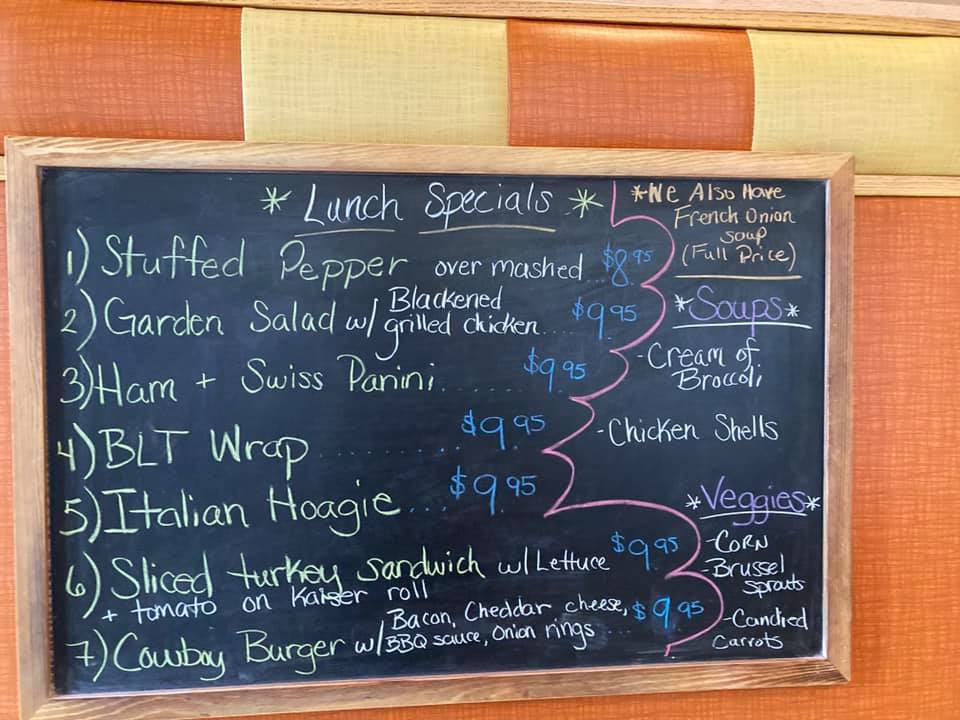 * Lunch Specials *
1) Stuffed Pepper over mashed $8.95
2) Garden Salad w/ Blackened
grilled chicken.... $9.95
3) Ham + Swiss Panini....... $9.95
4) BLT Wrap ......... $9.95
5) Italian Hoagie.... $9.95
6) Sliced turkey sandwich w/ Lettuce $9.95
+ tomato on Kaiser roll
7) Cowboy Burger w/ Bacon, Cheddar cheese, $9.95
BBQ sauce, Onion rings ....
*We Also Have
French Onion
Soup
(Full Price)
*Soups*
-Cream of
Broccoli
-Chicken Shells
*Veggies*
-Corn
-Brussel
sprouts
-Candied
Carrots